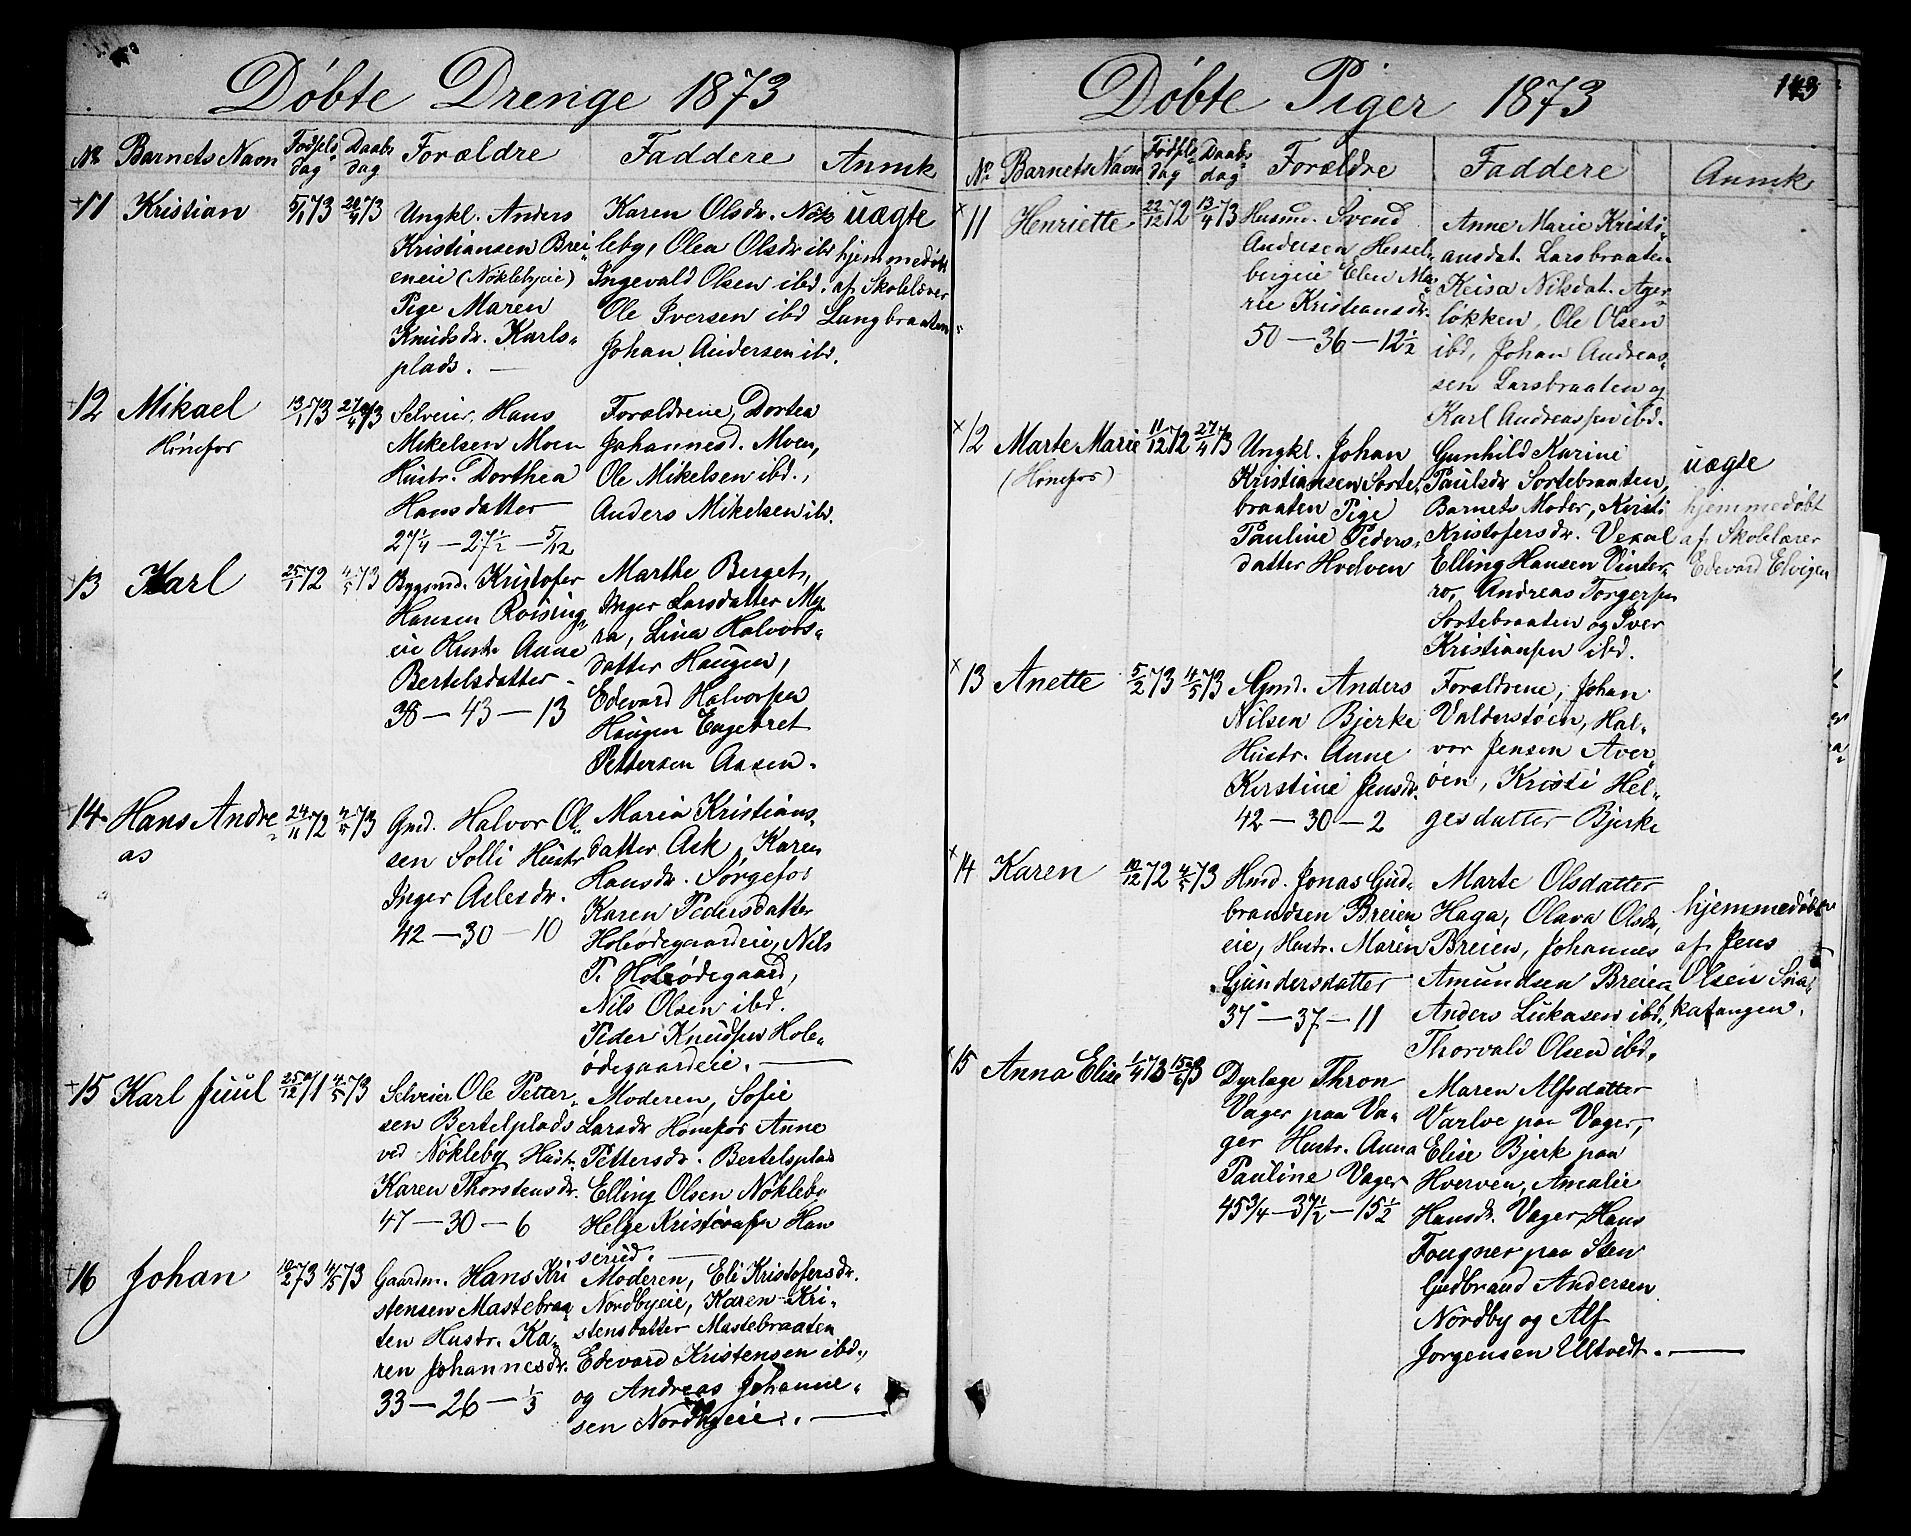 Döbte Drenge 1873
No Barnets Navn Födsels dag Daabs dag Forældre Faddere Anmk
11 Kristian 5/1 73 20/4 73
Ungkl. Anders
Kristiansen Brei-
eneie (Nöklebyeie)
Pige Maren
Knudsdr. Karls-
plads. —
Karen Olsdr. Nök-
leby, Olea Olsdr ibd
Ingevald Olsen ibd.
Ole Iversen ibd
Johan Andersen ibd.
uægte
hjemmedöbt
af Skolelærer
Lungbraaten
12 Mikael 13/1 73 27/4 73
Hönefos
Selveier. Hans
Mikelsen Moen
Hustr. Dorthea
Hansdatter
27 1/4 — 27 1/2 — 5/12
Forældrene, Dortea
Johannesd. Moen,
Ole Mikelsen ibd.,
Anders Mikelsen ibd.
13 Karl 25/1 72 4/5 73
Bygmd. Kristofer
Hansen Roising-
eie Hustr. Anne
Bertelsdatter.
38 — 43 — 13
Marthe Berget,
Inger Larsdatter My-
ra, Lina Halvors-
datter Haugen,
Edevard Halvorsen
Haugen Engebret
Pettersen Aasen.
14 Hans Andre- 24/11 72 4/5 73
as
Gmd. Halvor Ol-
sen Solli Hustr
Inger Aslesdr.
42 — 30 — 10
Maria Kristians-
datter Ask, Karen
Hansdr. Sörgefos
Karen Pedersdatter
Holeödegaardeie, Nils
P. Holeödegaard,
Nils Olsen ibd.
Peder Knudsen Hole-
ödegaardeie. —
15 Karl Juul 25/12 71 4/5 73
Selveier Ole Petter-
sen Bertelplads
ved Nökleby Hustr.
Karen Thorstensdr.
47 — 30 — 6
Moderen, Sofie
Larsdr Hönefos Anne
Pettersdr. Bertelsplads
Elling Olsen Nökleby
Helge Kristiansen Han
serud. —
16 Johan 10/2 73 4/5 73
Gaardm. Hans Kri
stensen Mastebraa
ten Hustr. Ka-
ren Johannesdr.
33 — 26 — 1/3
Moderen, Eli Kristofersdr.
Nordbyeie, Karen Kri-
stensdatter Mastebraaten
Edevard Kristensen ibd.,
og Andreas Johanne-
sen Nordbyeie. —
Döbte Piger 1873
143
No Barnets Navn Födsels dag Daabs dag Forældre Faddere Anmk
11 Henriette 22/12 72 13/4 73
Husmd. Svend
Andersen Hessel-
bergeie Elen Ma-
rie Kristiansdr.
50 — 36 — 12 1/2
Anne Marie Kristi-
ansdat. Larsbraaten
Keisa Nilsdat. Ager-
lökken, Ole Olsen
ibd, Johan Andreas-
sen Larsbraaten og
Karl Andreassen ibd.
12 Marte Marie 11/12 72 27/4 73
(Hönefos)
Ungkl. Johan
Kristiansen Sorte-
braaten Pige
Pauline Peders-
datter Hvelven
Gunhild Karine
Paulsdr Sortebraaten,
Barnets Moder, Kirsti
Kristofersdr. Vexal
Elling Hansen Vinter-
ro, Andreas Torgersen
Sortebraaten og Iver
Kristiansen ibd.
uægte
hjemmedöbt
af Skolelærer
Edevard Elvigen
13 Anette 5/2 73 4/5 73
Gmd. Anders
Nilsen Bjerke
Hustr. Anne
Kirstine Jensdr.
42 — 30 — 2
Forældrene, Johan
Valderstöen, Hal-
vor Jensen Aver-
öen, Kristi Hel-
gesdatter Bjerke
14 Karen 10/12 72 4/5 73
Hmd. Jonas Gud-
brandsen Breien
eie, Hustr. Maren
Gundersdatter
37 — 37 — 11
Marte Olsdatter
Haga, Olava Olsdr,
Breien, Johannes
Amundsen Breien
Anders Lukasen ibd.,
Thorvald Olsen ibd.
hjemmedöbt
af Jens
Olsen Sna-
katangen.
15 Anna Elise 1/4 73 15/6 73
Dyrlæge Thron
Vager paa Va-
ger Hustr. Anna
Pauline Vager
45 3/4 — 37 1/2 — 15 1/2
Maren Alfsdatter
Varlve paa Vager,
Elise Bjerk paa
Hverven, Amalie
Hansdr. Vager, Hans
Fougner paa Sten
Gudbrand Andersen
Nordby og Alf
Jorgensen Ultvedt. —